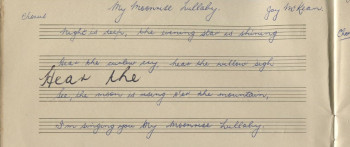 My Moonrise Lullaby. Joy McKean
Chorus
Night is near, the evening star is shining
Hear the curlew cry, hear the willow sigh
Hear the
See, the moon is rising o'er the mountain,
I'm singing you My Moonrise Lullaby.